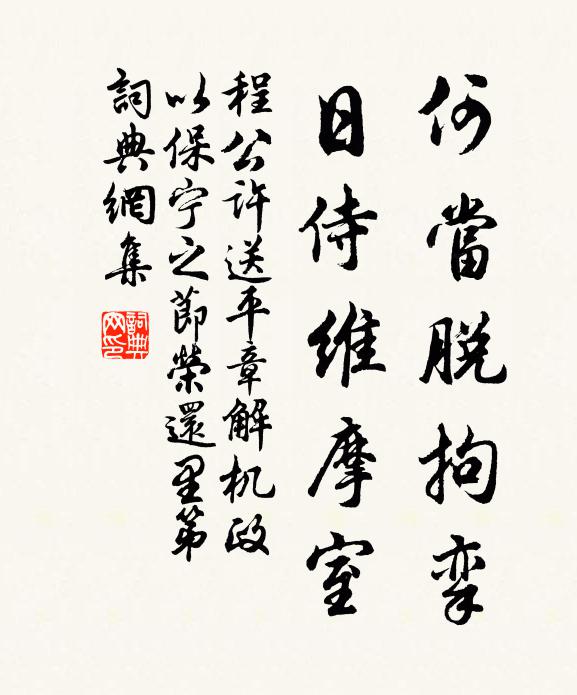 何當脫拘挛
日侍維摩室
程公许送平章解机政
以保宁之節榮還里第
詞典網集
詞典网印